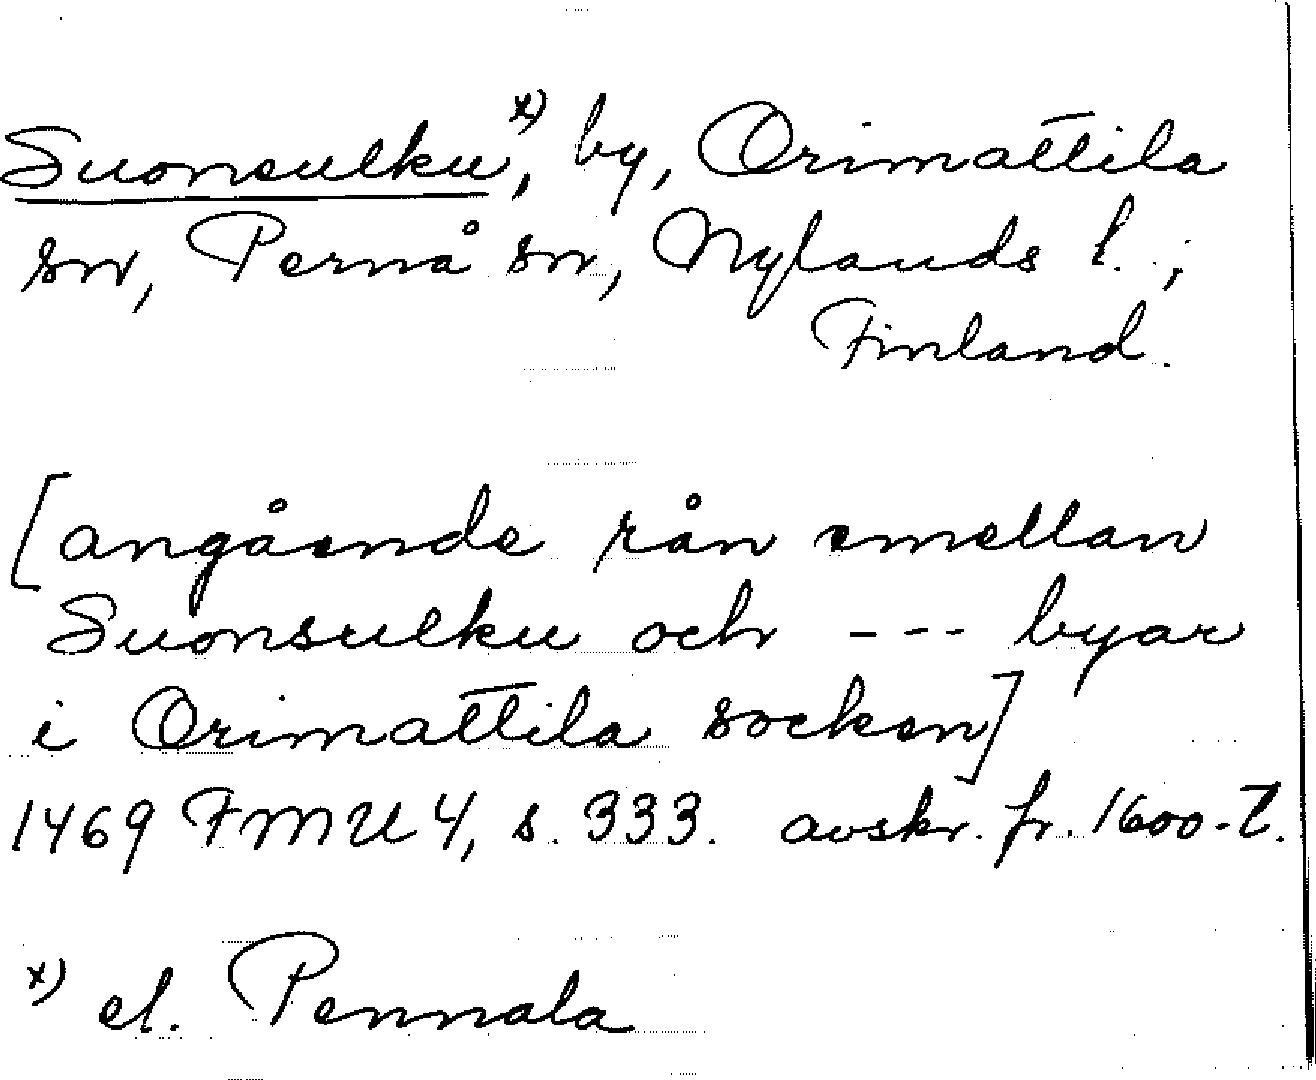 Suonsulku x), by, Orimattila
sn, Pernå sn, Nylands l.;
Finland.
[angående rån emellan
Suonsulku och --- byar
i Orimattila socken]
1469 FMU 4, s. 333. avskr. fr. 1600-t.
x) el. Pennala